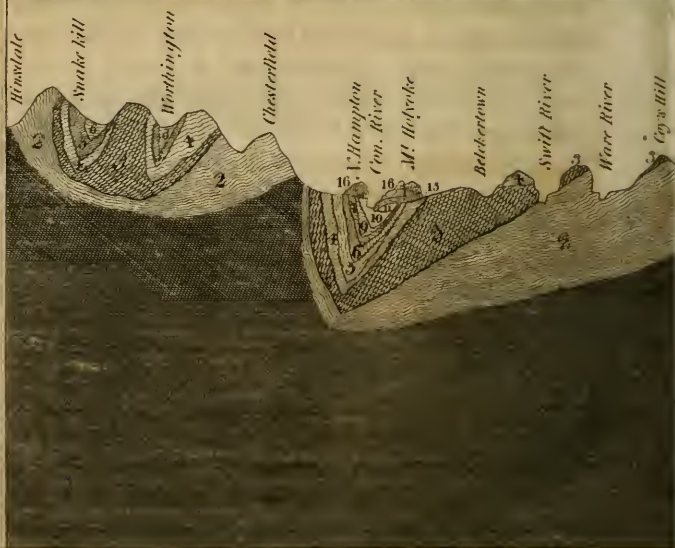 Hinsdale
Snake kill
Worthington
Chesterfield
N. Hampton
Con. River
Mt. Holyoke
Belchertown
Swift River
Ware River
Coy's Hill
2
3
4
2
16
16
15
10
4
9
5
3
4
3
3
2